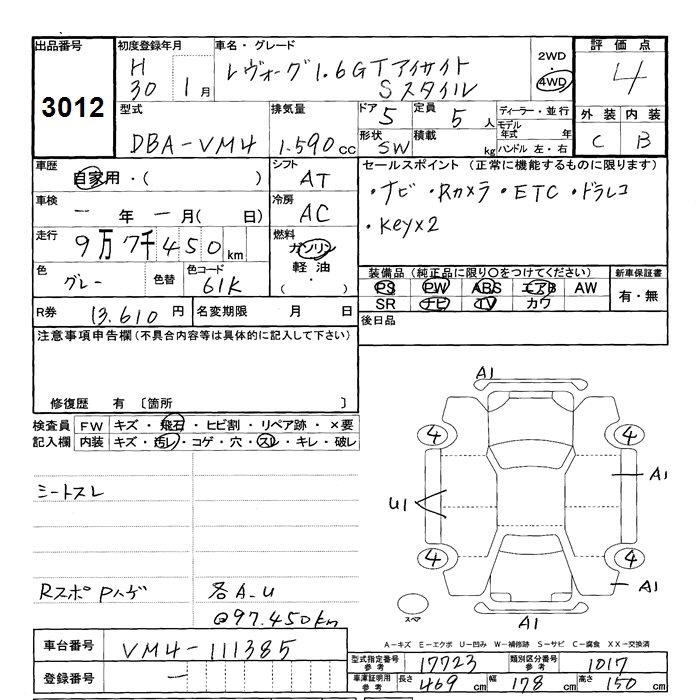 出品番号 初度登録年月 車名・グレード 2WD 評価点
3012 H 30 1月 レヴォーグ1.6GTアイサイト 4WD 4
Sスタイル
型式 排気量 ドア 5 定員 5人 ディーラー・並行 外装 内装
DBA-VM4 1.590cc 形状 SW 積載 kg モデル年式 年 C B
ハンドル 左・右
車歴 自家用・( ) シフト AT セールスポイント (正常に機能するものに限ります)
車検 - 年 - 月( 日) 冷房 AC ・ナビ ・Rカメラ ・ETC ・ドラレコ
・Keyx2
走行 9万7千450km 燃料 ガソリン
軽油
・( )
色 グレー 色替 色コード 61K 装備品(純正品に限り○をつけてください) 新車保証書
PS PW ABS エアB AW 有・無
SR ナビ TV カワ
R券 13.610円 名変期限 月 日 後日品
注意事項申告欄(不具合内容等は具体的に記入して下さい)
修復歴 有 〔箇所 〕
検査員 FW キズ・飛石・ヒビ割・リペア跡・×要
記入欄 内装 キズ・汚レ・コゲ・穴・スレ・キレ・破レ
シートスレ
Rスポ Pハゲ 各A.U
@97.450km
A1
4 4
A1
U1
4 4
A1
スペア A1
A-キズ E-エクボ U-凹み W-補修跡 S-サビ C-腐食 XX-交換済
車台番号 VM4-111385
登録番号 -
型式指定番号 参考 17723 類別区分番号 参考 1017
車庫証明用 参考 長さ 469cm 幅 178cm 高さ 150cm